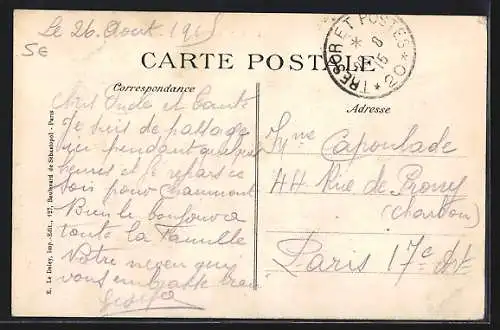 Le 26 Aout 1915
5E
TRESOR ET POSTES
* 20 *
8
15
CARTE POSTALE
Correspondance
Adresse
Oncle et Tante
Je suis de passage
ici pendant quelques
heures et je repars ce
soir pour Chaumont
Bien le bonjour a
toute la Famille
Votre neveu qui
vous embrasse bien
Capoulade
44 Rue de Prony
(Charbon)
Paris 17e Art
E. Le Deley, Imp.-Edit., 127, Boulevard de Sébastopol - Paris